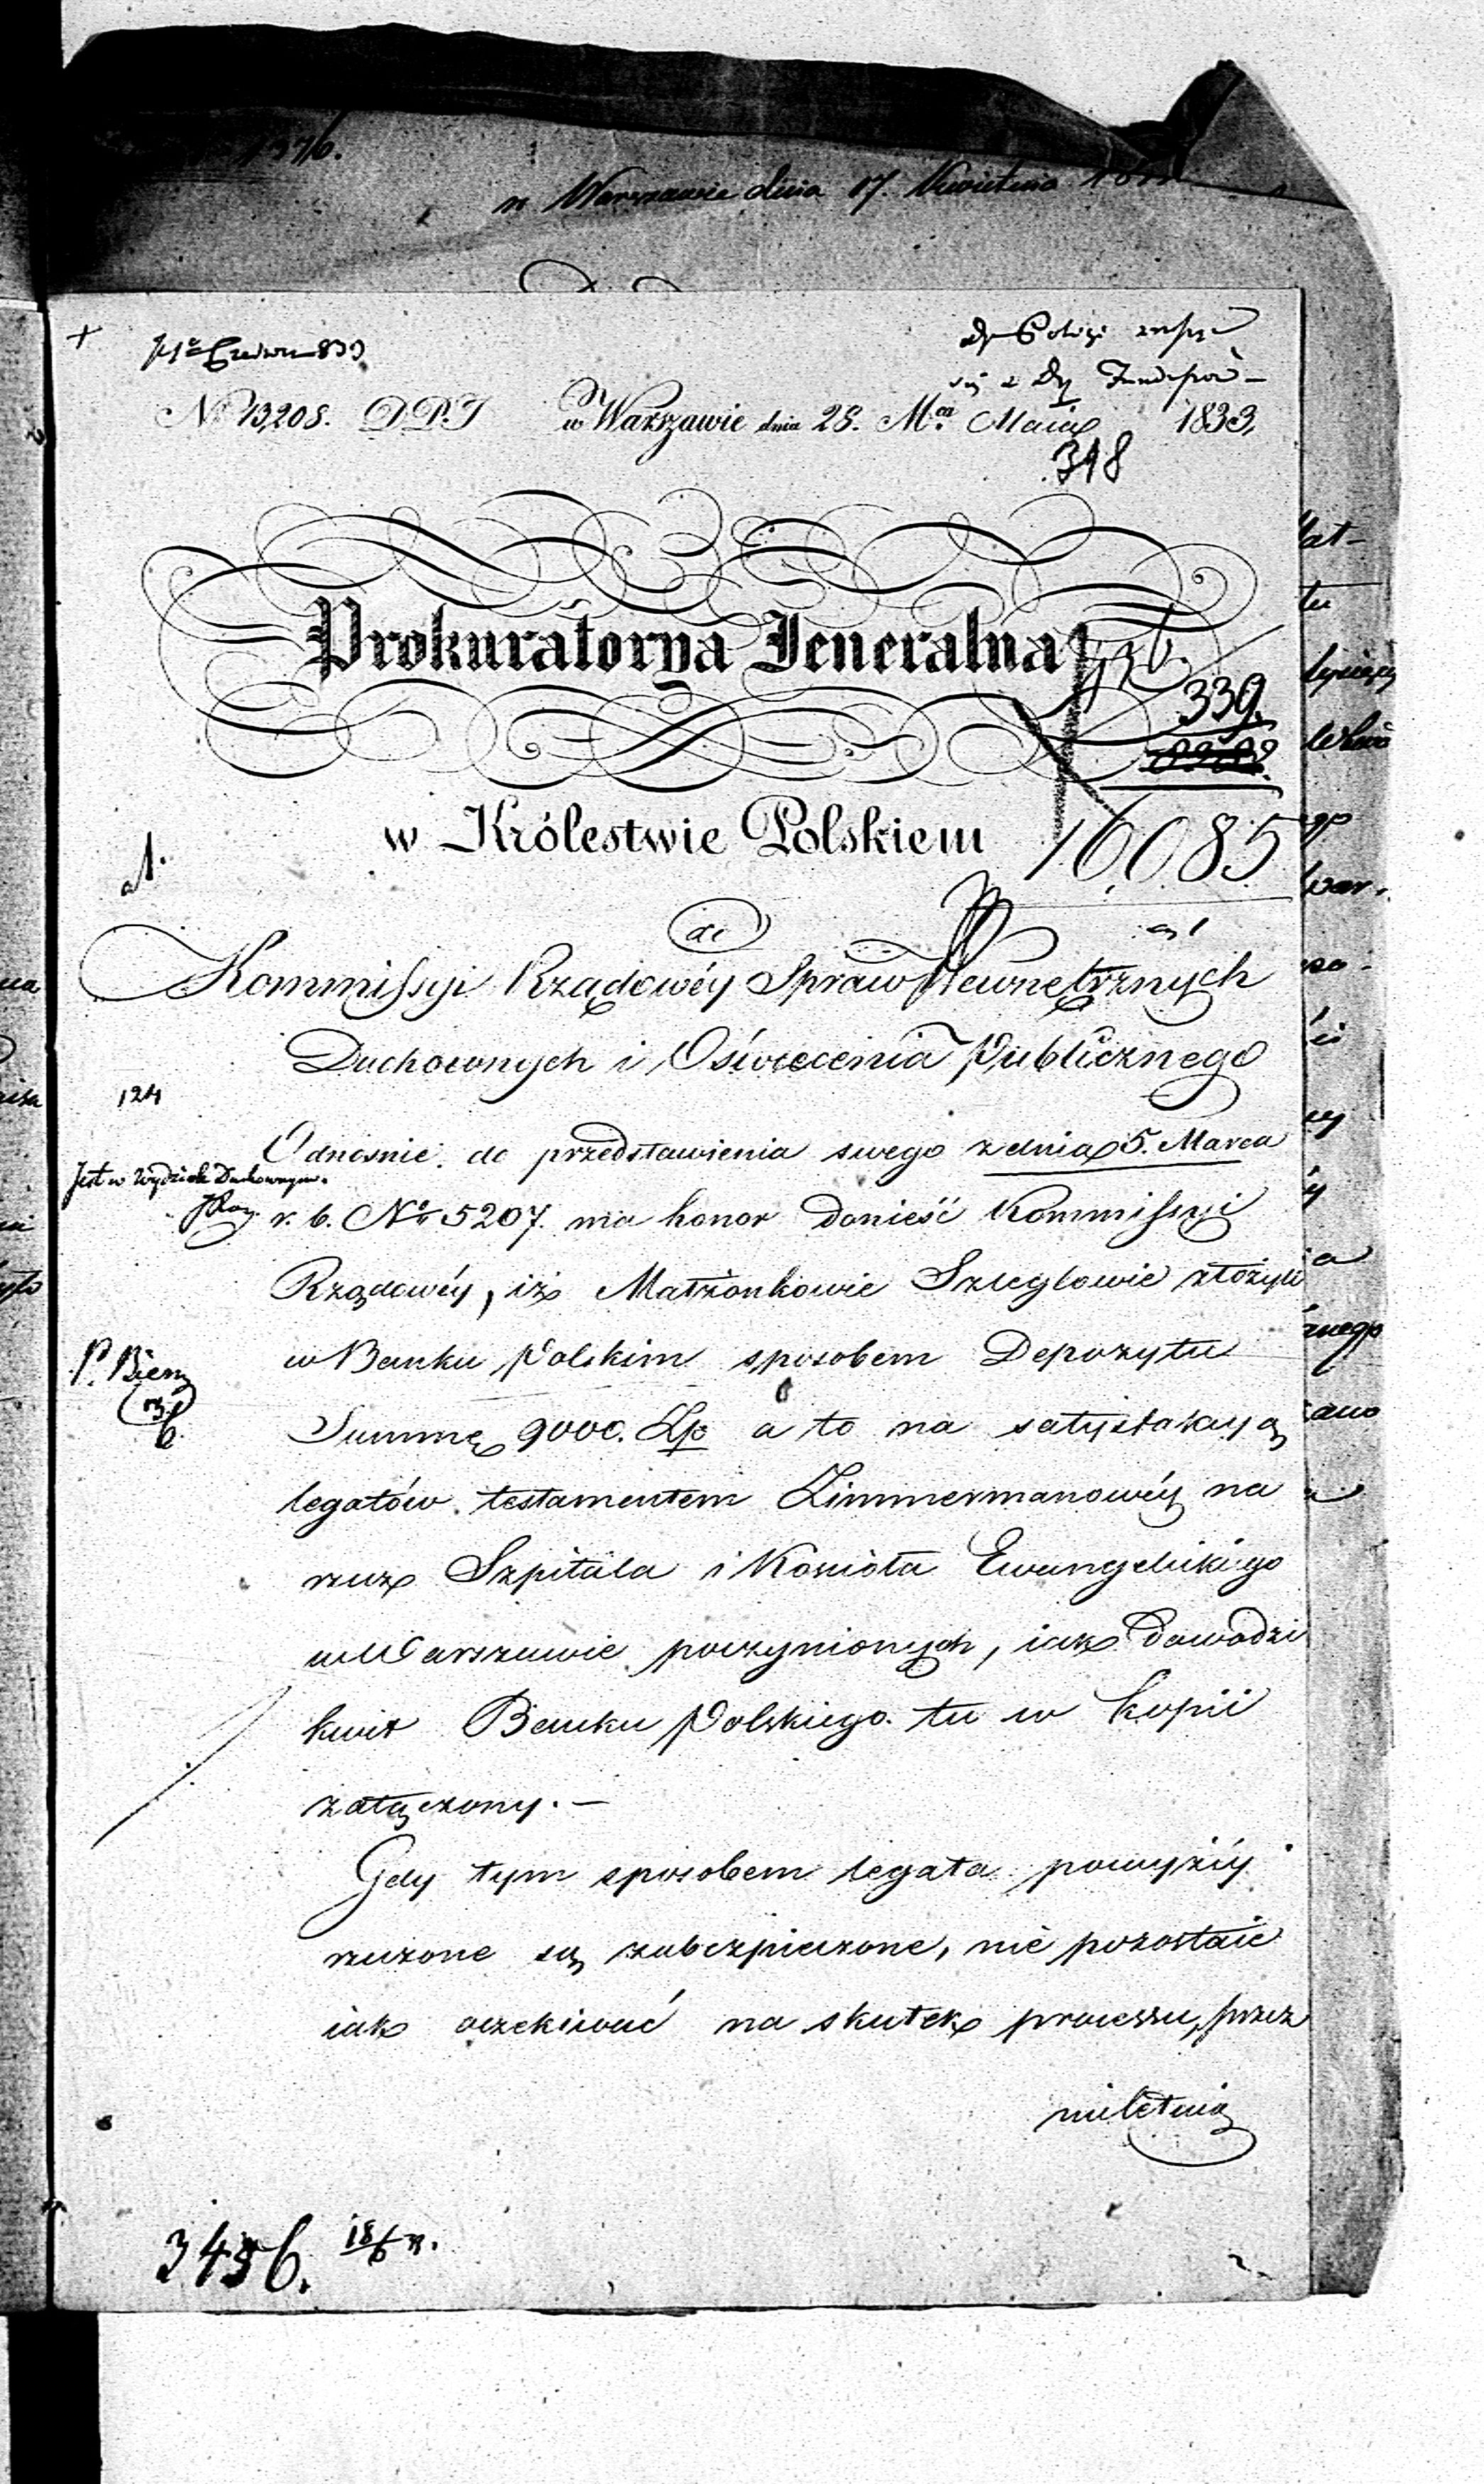 w Warszawie dnia 17. Kwietnia
N. 13,208. D.P.J w Warszawie dnia 28. Mca Maia 1833,
318
Prokuratorya Jeneralna
339.
w Królestwie Polskiem
16085
do
Kommissyi Rządowéy Spraw Wewnętrznych
Duchownych i Oświecenia Publicznego
124
Odnośnie do przedstawienia swego z dnia 5. Marca
Jest w Wydziale Duchownym.
r. b. No 5207. ma honor donieść Kommissyi
Rządowéy, iż Małżonkowie Szleglowie złożyli
w Banku Polskim sposobem Depozytu
P. Bien
Summę 9000. Złp a to na satysfakcyą
legatów testamentem Zimmermanowéy na
rzecz Szpitala i Kościoła Ewangelickiego
w Warszawie poczynionych, iak dowodzi
kwit Banku Polskiego tu w kopii
załączony. —
Gdy tym sposobem legata powyżéy
rzeczone są zabezpieczone, nie pozostaie
iak oczekiwać na skutek processu, przez
nieletnią
3456. 18/6 33.